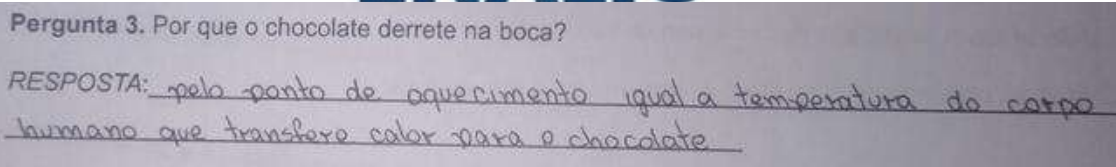 Pergunta 3. Por que o chocolate derrete na boca?
RESPOSTA: pelo ponto de aquecimento igual a temperatura do corpo
humano que transfere calor para o chocolate